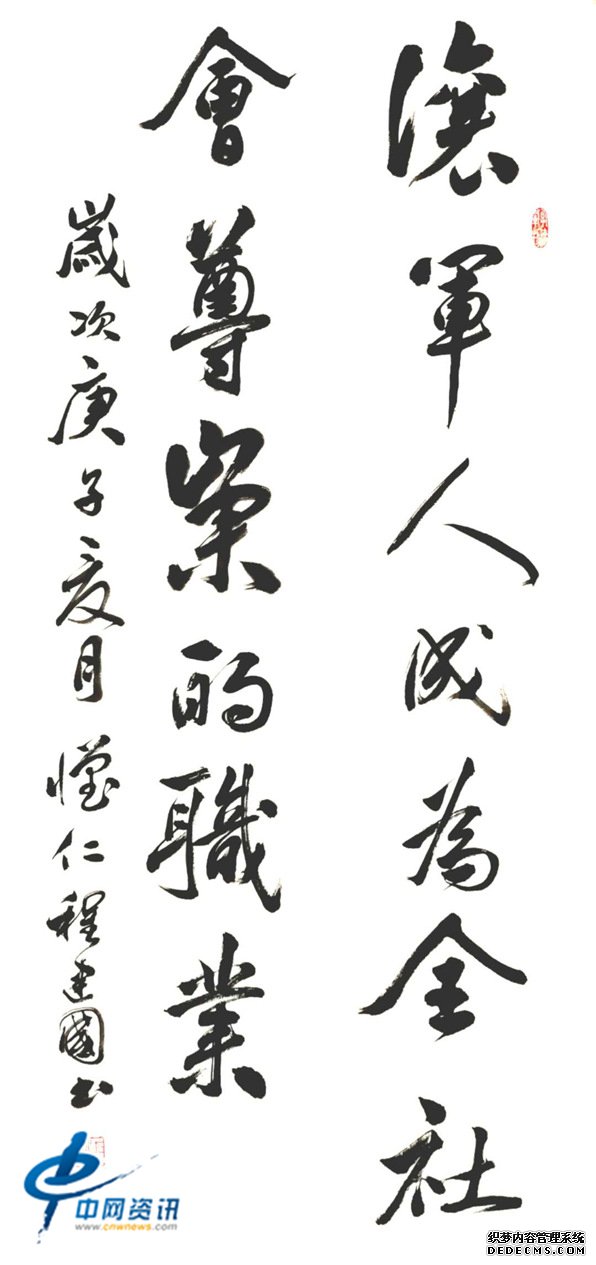 讓軍人成為全社
會尊崇的職業
歲次庚子夏月 懷仁程建國书
中网资讯
www.cnwnews.com
织梦内容管理系统
DEDECMS.COM